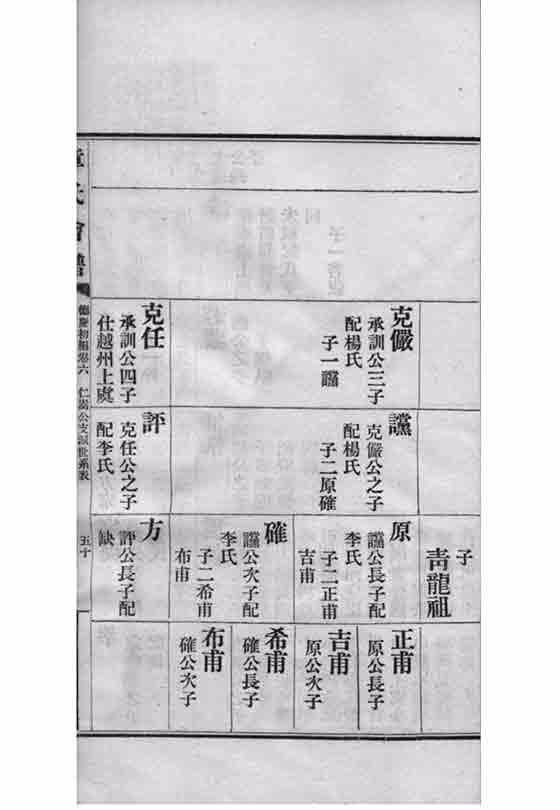 克儼
承訓公三子
配楊氏
子一讜
克任
承訓公四子
仕越州上虞
讜
克儼公之子
配楊氏
子二原確
評
克任公之子
配李氏
子
青龍祖
原
讜公長子配
李氏
子二正甫
吉甫
確
讜公次子配
李氏
子二希甫
布甫
方
評公長子配
缺
正甫
原公長子
吉甫
原公次子
希甫
確公長子
布甫
確公次子
氏會譜
初編卷六
仁
公支派世系表
五十